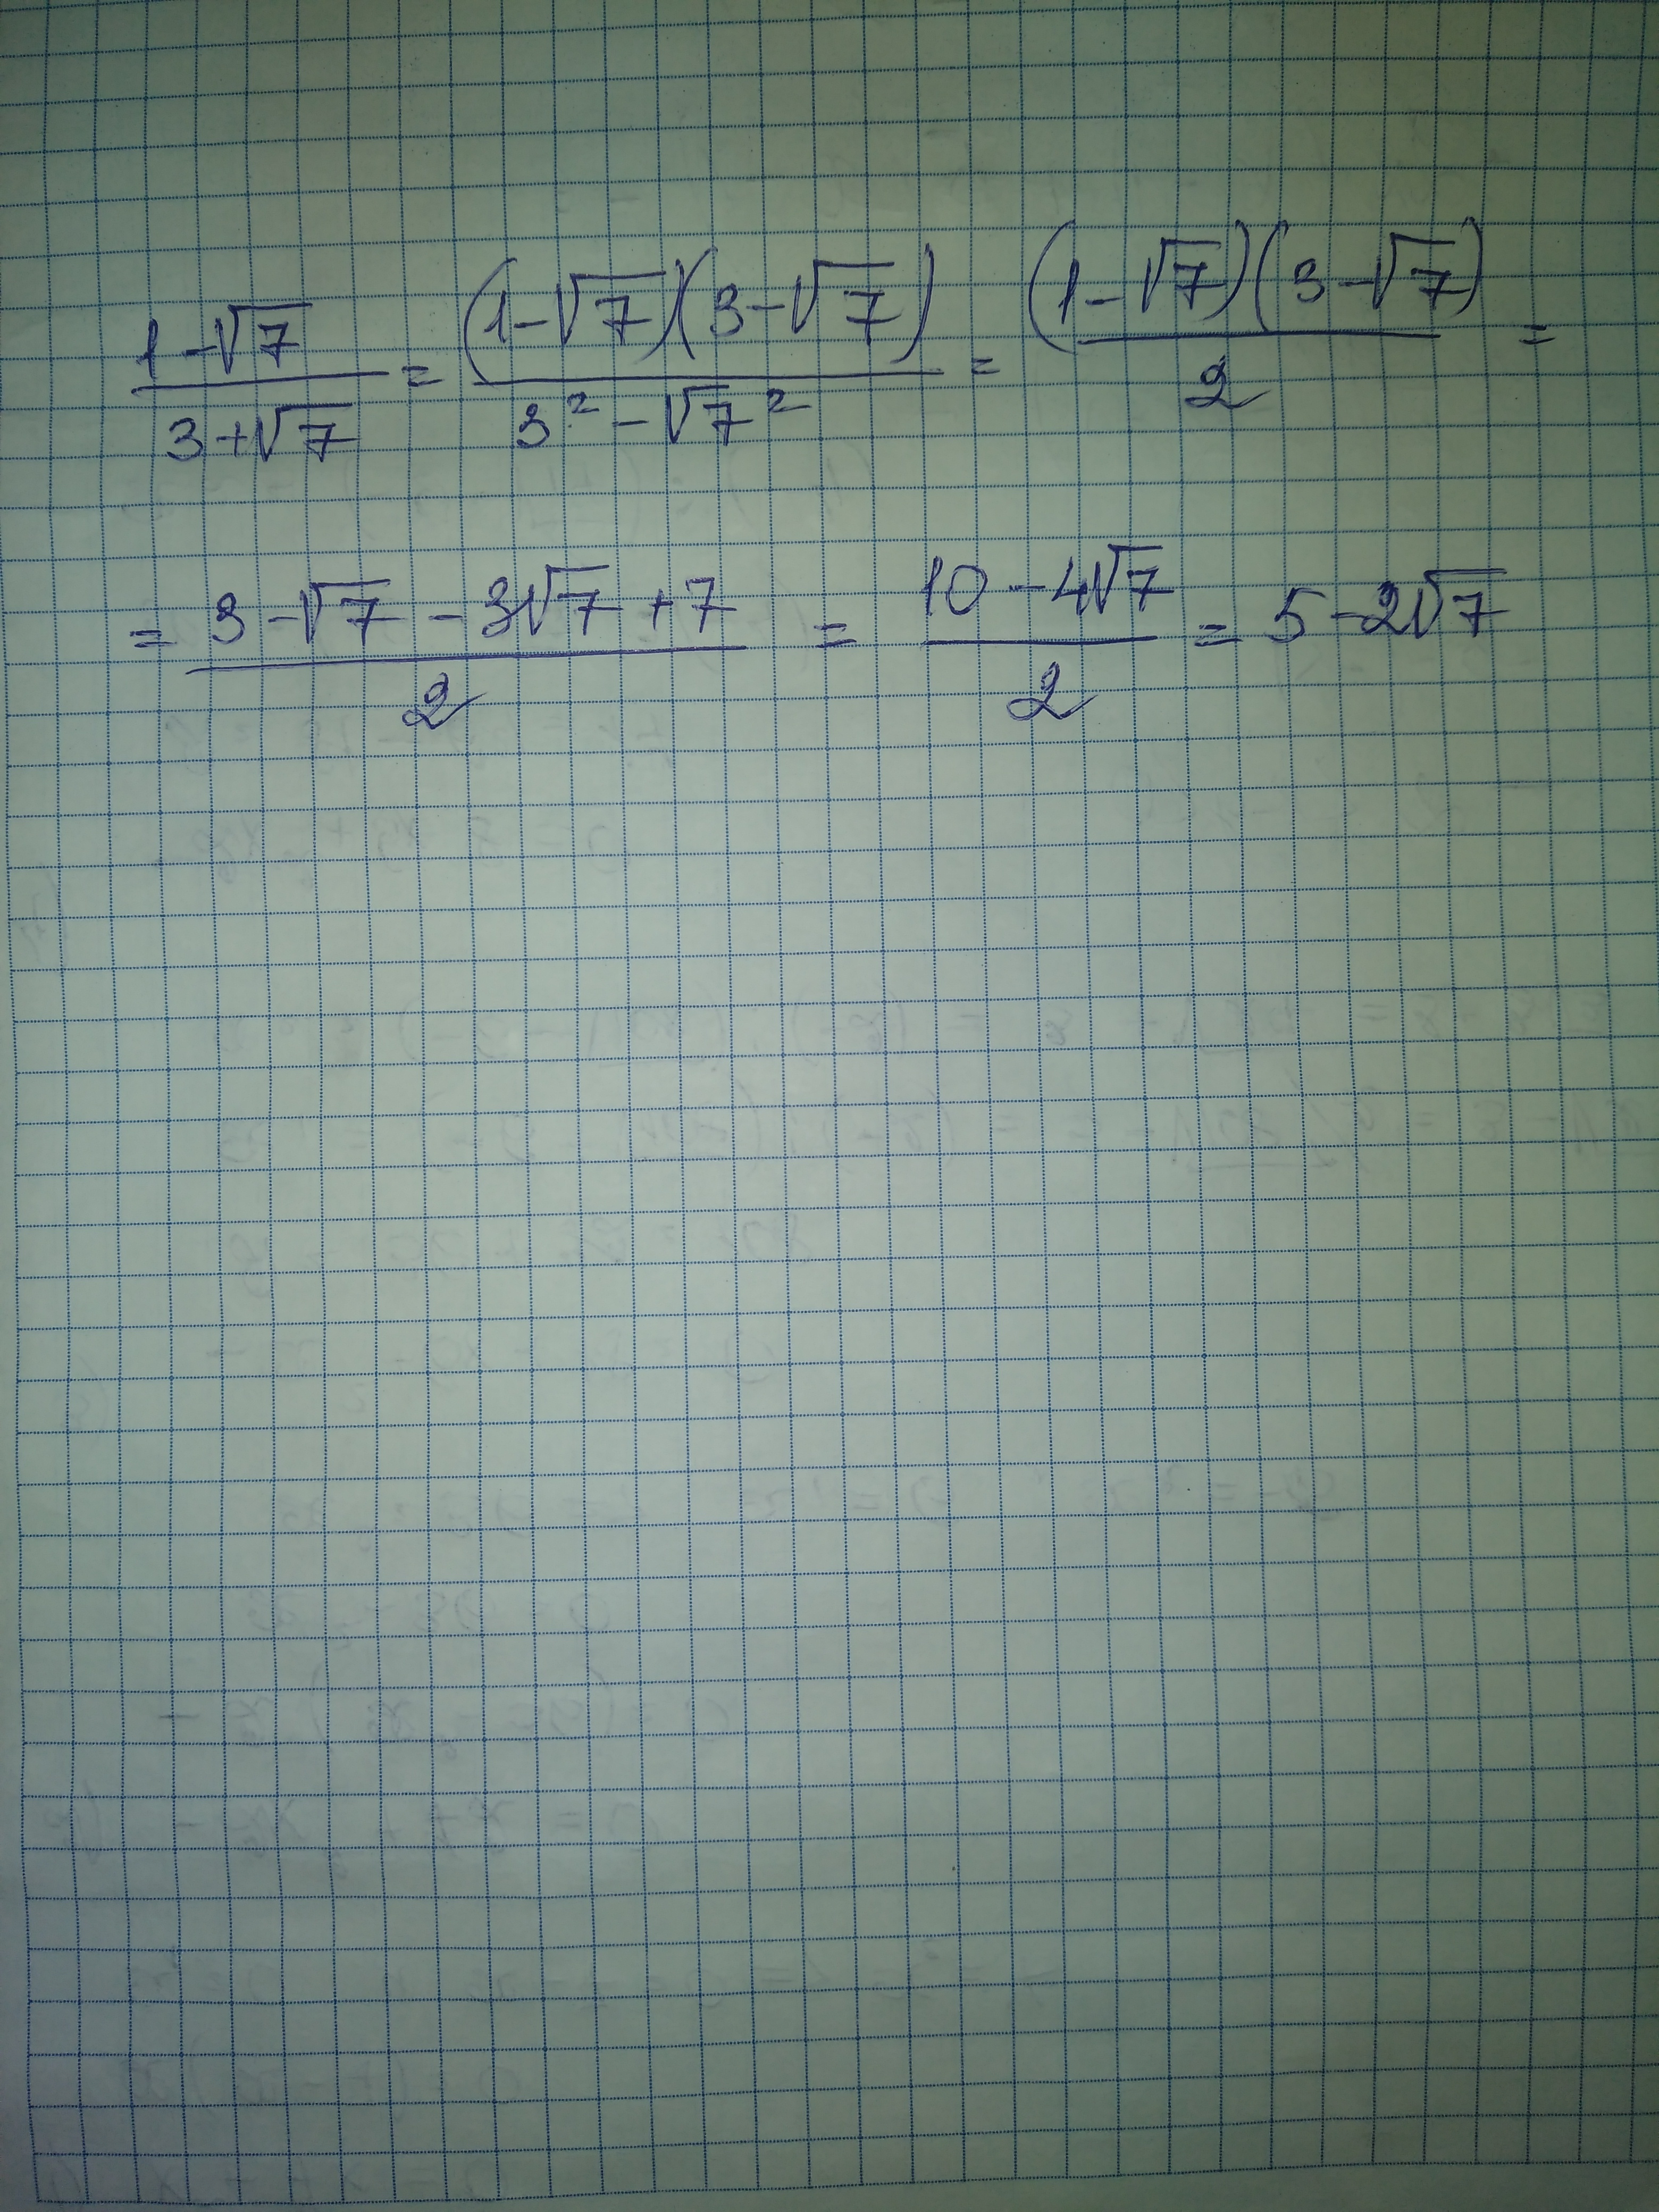 (1-√7)/(3+√7) = ((1-√7)(3-√7))/(3²-√7²) = ((1-√7)(3-√7))/2 =
= (3-√7-3√7+7)/2 = (10-4√7)/2 = 5-2√7